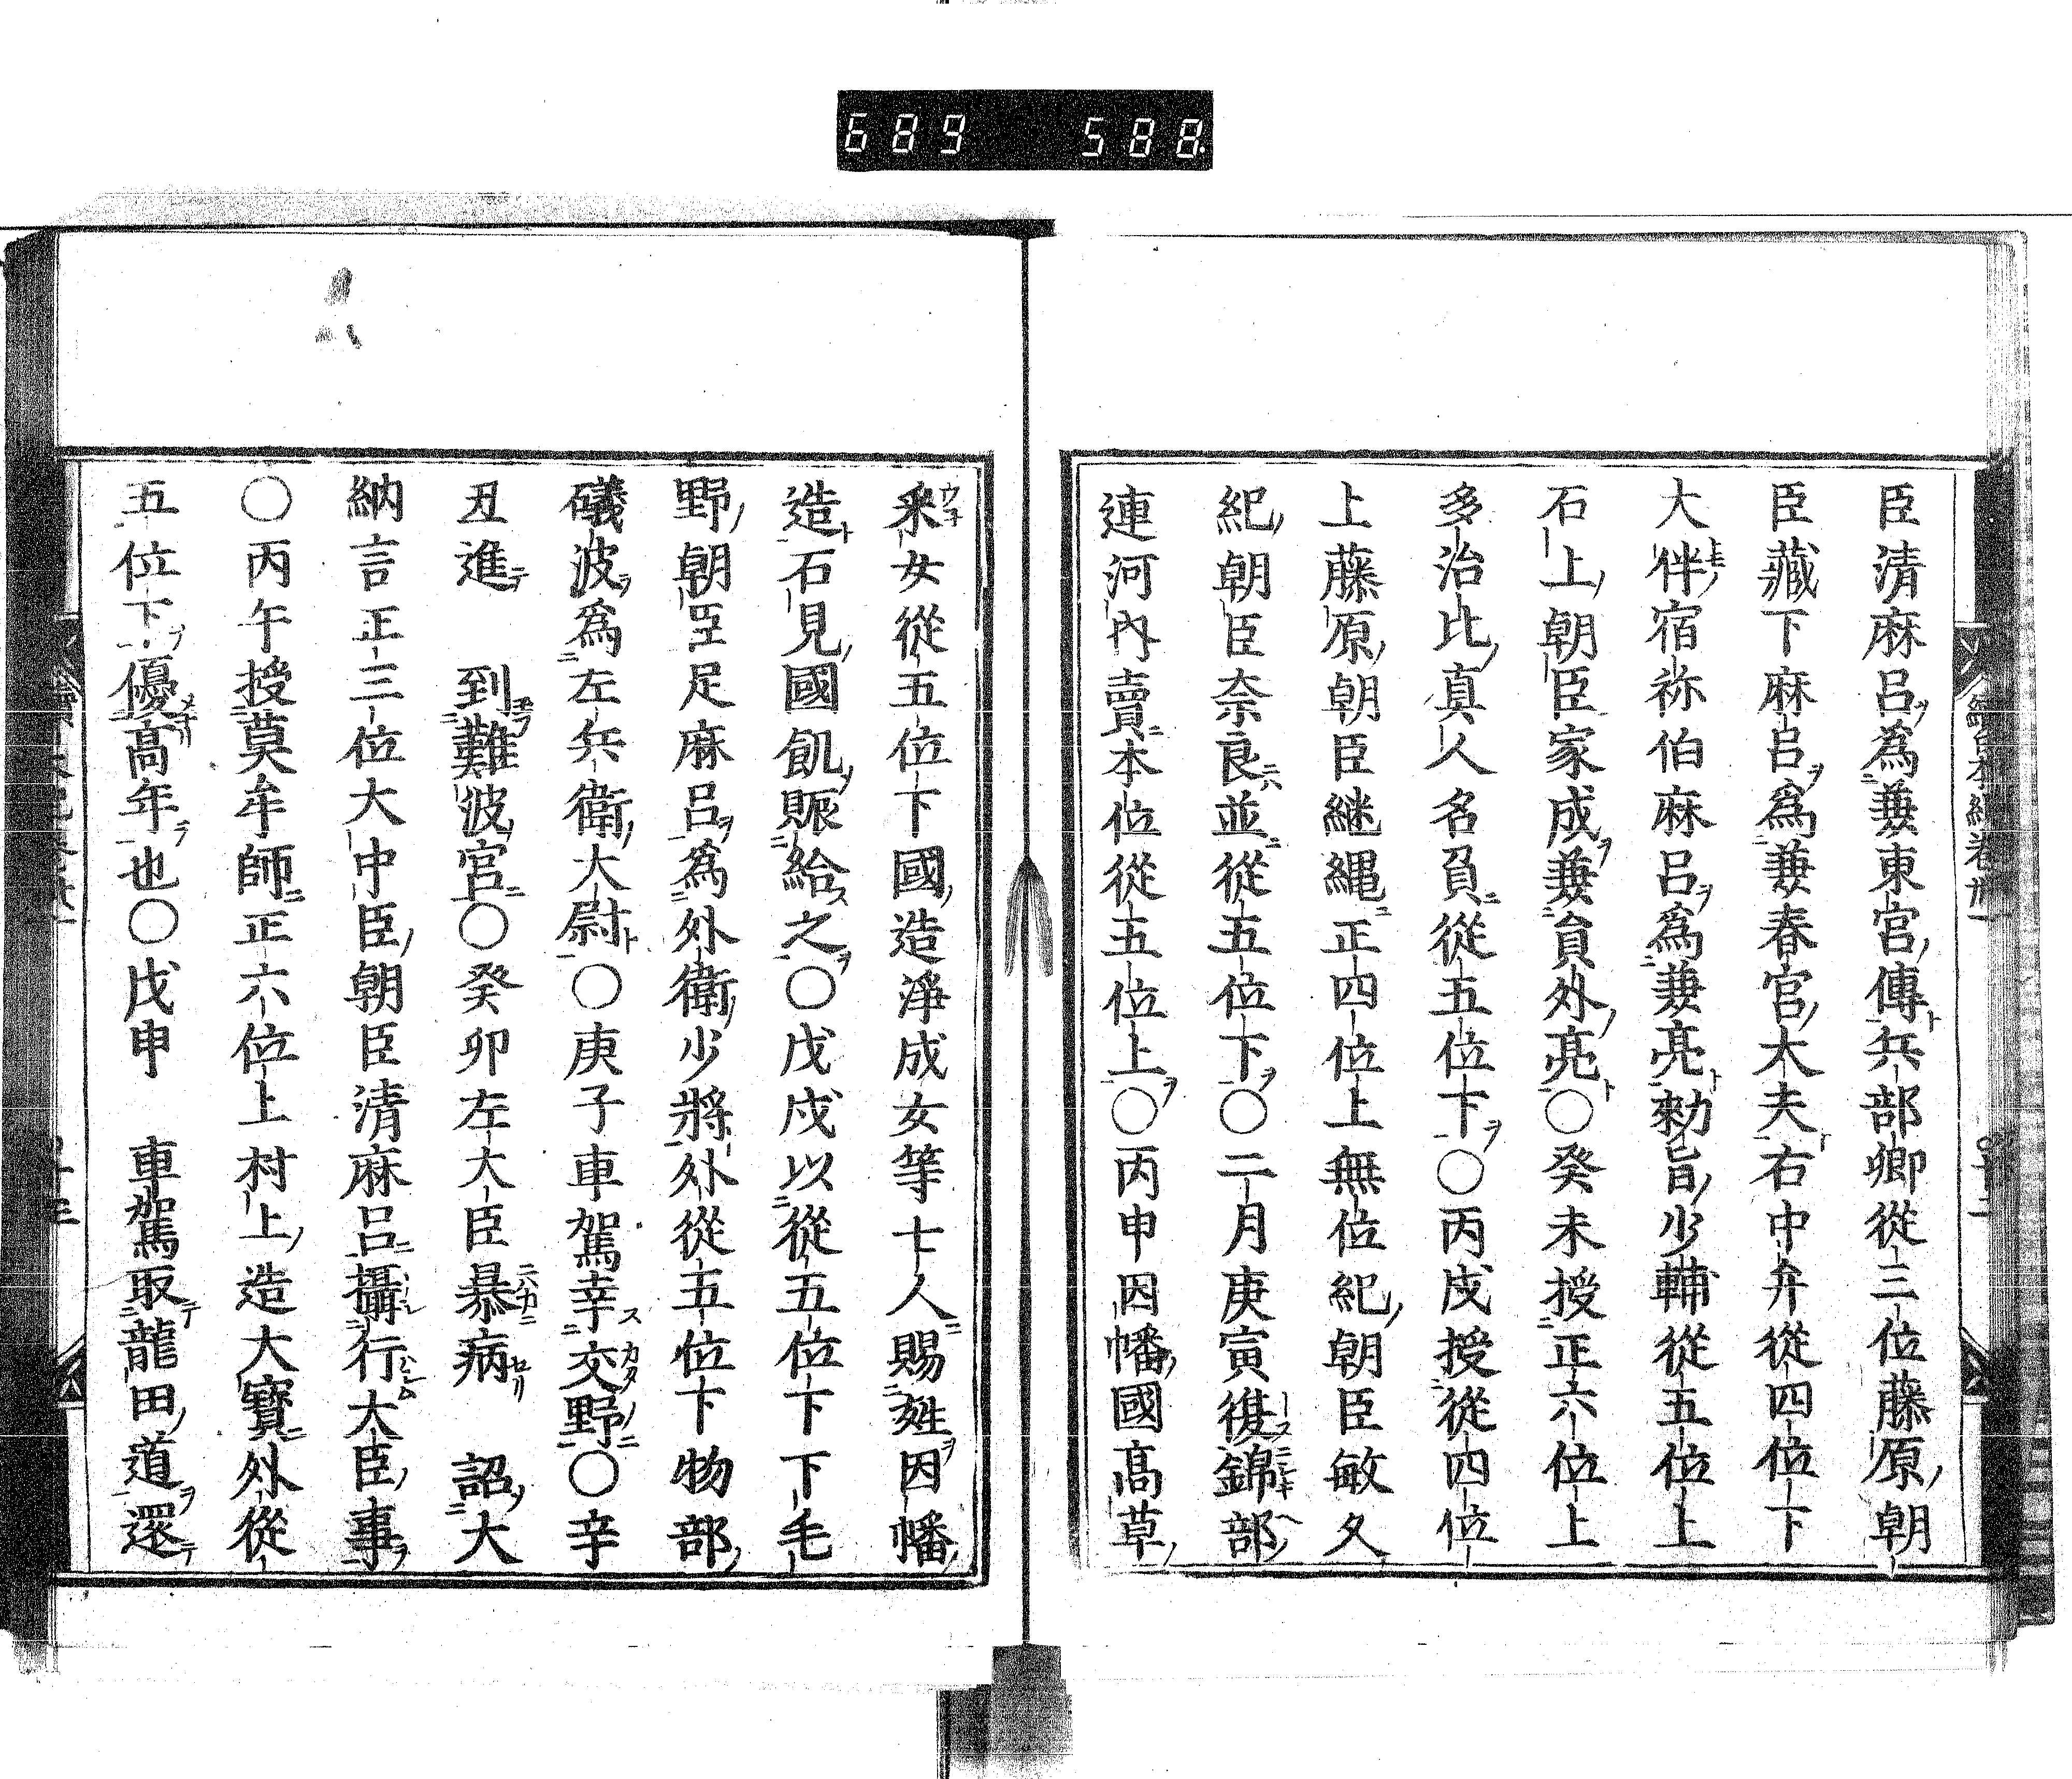 689 588
臣清麻呂爲兼東宮傳兵部卿從三位藤原朝
臣藏下麻呂爲兼春宮大夫右中弁從四位下
大伴宿祢伯麻呂爲兼亮勅旨少輔從五位上
石上朝臣家成兼員外亮○癸未授正六位上
多治比真人名負從五位下○丙戌授從四位
上藤原朝臣継縄正四位上無位紀朝臣敏久
紀朝臣奈良並從五位下○二月庚寅復錦部
連河内賣本位從五位上○丙申因幡國高草
釆女從五位下國造淨成女等七人賜姓因幡
造石見國飢賑給之○戊戌以從五位下下毛
野朝臣足麻呂爲外衛少將外從五位下物部
礒波爲左兵衛大尉○庚子車駕幸交野○辛
丑進 到難波宮○癸卯左大臣暴病 詔大
納言正三位大中臣朝臣清麻呂攝行大臣事
○丙午授莫牟師正六位上村上造大寶外從
五位下優高年也○戊申 車駕取龍田道還